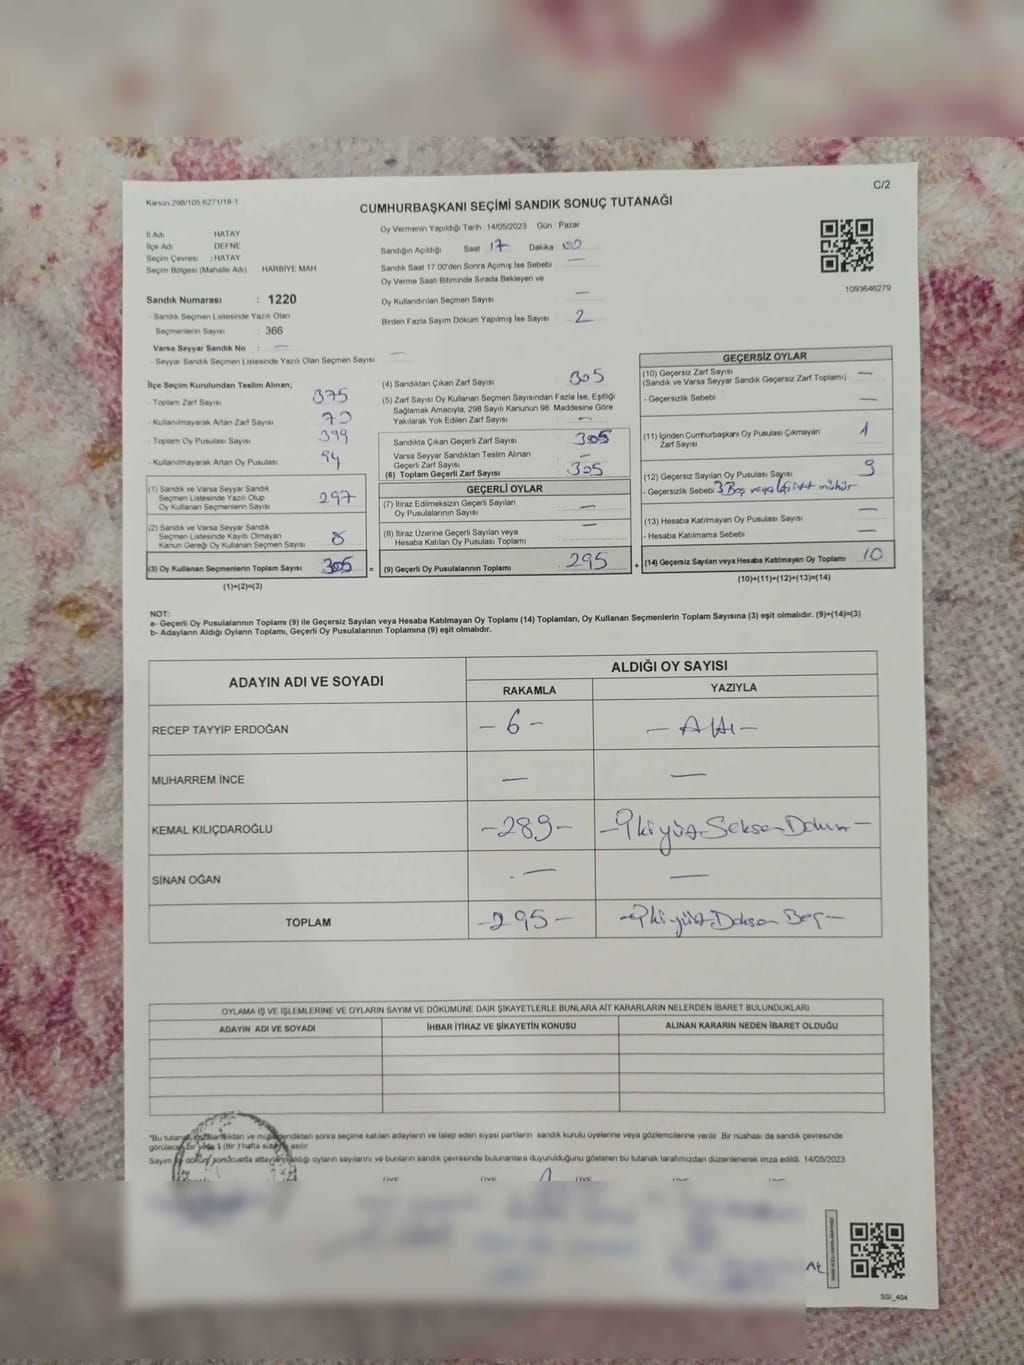 Kanun 298/105,6271/18-1
C/2
CUMHURBAŞKANI SEÇİMİ SANDIK SONUÇ TUTANAĞI
İl Adı HATAY
İlçe Adı DEFNE
Seçim Çevresi : HATAY
Seçim Bölgesi (Mahalle Adı) HARBİYE MAH
Sandık Numarası : 1220
- Sandık Seçmen Listesinde Yazılı Olan
Seçmenlerin Sayısı : 366
Varsa Seyyar Sandık No : —
- Seyyar Sandık Seçmen Listesinde Yazılı Olan Seçmen Sayısı —
Oy Vermenin Yapıldığı Tarih 14/05/2023 Gün Pazar
Sandığın Açıldığı Saat 17 Dakika 00
Sandık Saat 17.00'den Sonra Açımış İse Sebebi —
Oy Verme Saati Bitiminde Sırada Bekleyen ve
Oy Kullandırılan Seçmen Sayısı —
Birden Fazla Sayım Döküm Yapılmış İse Sayısı 2
1093646279
İlçe Seçim Kurulundan Teslim Alınan;
- Toplam Zarf Sayısı 375
- Kullanılmayarak Artan Zarf Sayısı 70
- Toplam Oy Pusulası Sayısı 399
- Kullanılmayarak Artan Oy Pusulası 94
(1) Sandık ve Varsa Seyyar Sandık
Seçmen Listesinde Yazılı Olup
Oy Kullanan Seçmenlerin Sayısı 297
(2) Sandık ve Varsa Seyyar Sandık
Seçmen Listesinde Kayıtlı Olmayan
Kanun Gereği Oy Kullanan Seçmen Sayısı 8
(3) Oy Kullanan Seçmenlerin Toplam Sayısı 305 =
(1)+(2)=(3)
(4) Sandıktan Çıkan Zarf Sayısı 305
(5) Zarf Sayısı Oy Kullanan Seçmen Sayısından Fazla İse, Eşitliği
Sağlamak Amacıyla, 298 Sayılı Kanunun 98. Maddesine Göre
Yakılarak Yok Edilen Zarf Sayısı —
Sandıkta Çıkan Geçerli Zarf Sayısı 305
Varsa Seyyar Sandıktan Teslim Alınan
Geçerli Zarf Sayısı —
(6) Toplam Geçerli Zarf Sayısı 305
GEÇERLİ OYLAR
(7) İtiraz Edilmeksizin Geçerli Sayılan
Oy Pusulalarının Sayısı —
(8) İtiraz Üzerine Geçerli Sayılan veya
Hesaba Katılan Oy Pusulası Toplamı —
(9) Geçerli Oy Pusulalarının Toplamı : 295 +
GEÇERSİZ OYLAR
(10) Geçersiz Zarf Sayısı —
(Sandık ve Varsa Seyyar Sandık Geçersiz Zarf Toplamı)
- Geçersizlik Sebebi —
(11) İçinden Cumhurbaşkanı Oy Pusulası Çıkmayan
Zarf Sayısı 1
(12) Geçersiz Sayılan Oy Pusulası Sayısı 9
- Geçersizlik Sebebi 3 Boş veya mühür
(13) Hesaba Katılmayan Oy Pusulası Sayısı —
- Hesaba Katılmama Sebebi —
(14) Geçersiz Sayılan veya Hesaba Katılmayan Oy Toplamı 10
(10)+(11)+(12)+(13)=(14)
NOT:
a- Geçerli Oy Pusulalarının Toplamı (9) ile Geçersiz Sayılan veya Hesaba Katılmayan Oy Toplamı (14) Toplamları, Oy Kullanan Seçmenlerin Toplam Sayısına (3) eşit olmalıdır. (9)+(14)=(3)
b- Adayların Aldığı Oyların Toplamı, Geçerli Oy Pusulalarının Toplamına (9) eşit olmalıdır.
ADAYIN ADI VE SOYADI
ALDIĞI OY SAYISI
RAKAMLA YAZIYLA
RECEP TAYYİP ERDOĞAN - 6 - - Altı -
MUHARREM İNCE — —
KEMAL KILIÇDAROĞLU - 289 - - İkiyüz Seksen Dokuz -
SİNAN OĞAN — —
TOPLAM - 295 - - İkiyüz Doksan Beş -
OYLAMA İŞ VE İŞLEMLERİNE VE OYLARIN SAYIM VE DÖKÜMÜNE DAİR ŞİKAYETLERLE BUNLARA AİT KARARLARIN NELERDEN İBARET BULUNDUKLARI
ADAYIN ADI VE SOYADI İHBAR İTİRAZ VE ŞİKAYETİN KONUSU ALINAN KARARIN NEDEN İBARET OLDUĞU
"Bu tutanak sonra seçime katılan adayların ve talep eden siyasi partilerin sandık kurulu üyelerine veya gözlemcilerine verilir. Bir nüshası da sandık çevresinde
görülecek bir yere (Bir) hafta asılır
Sayım ve döküm sonucunda adayların aldığı oyların sayılarını ve bunların sandık çevresinde bulunanlara duyurulduğunu gösteren bu tutanak tarafımızdan düzenlenerek imza edildi. 14/05/2023
SSI_404